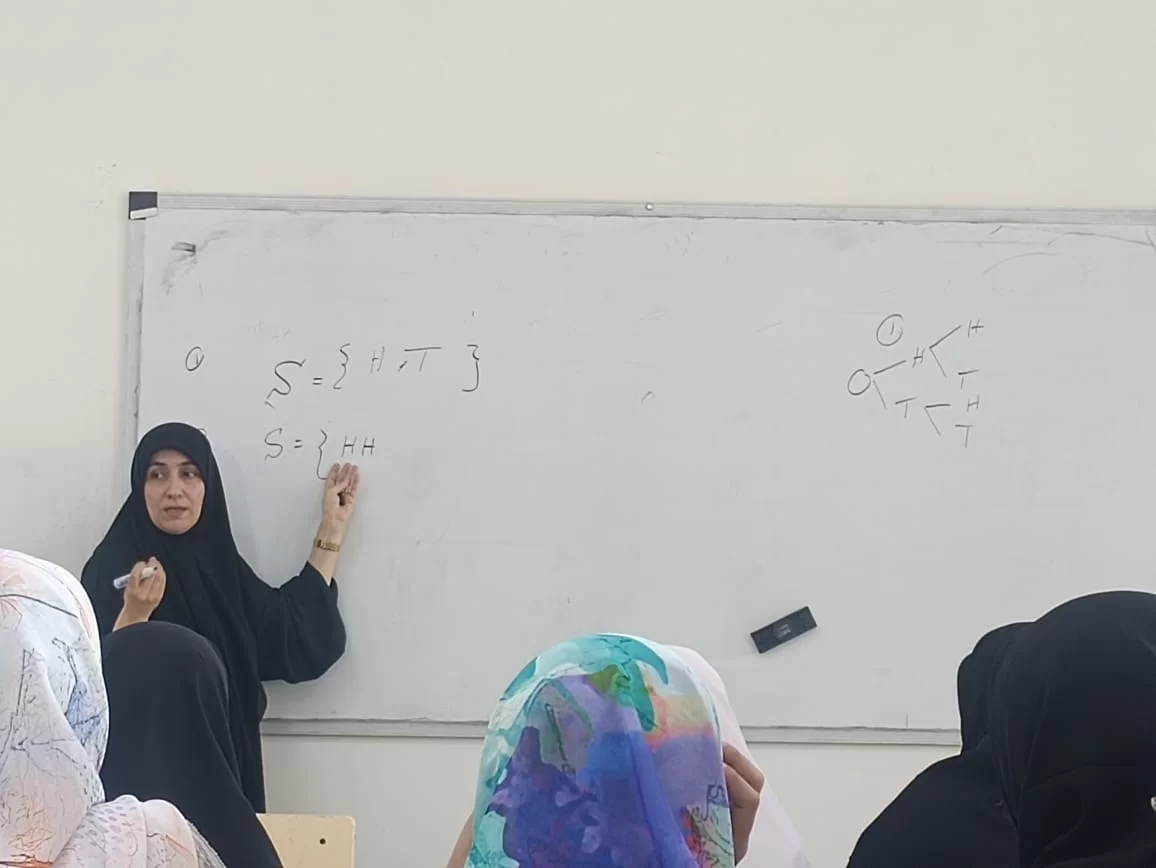 ① S = { H , T }
S = { H H
①
H H
T
T H
T